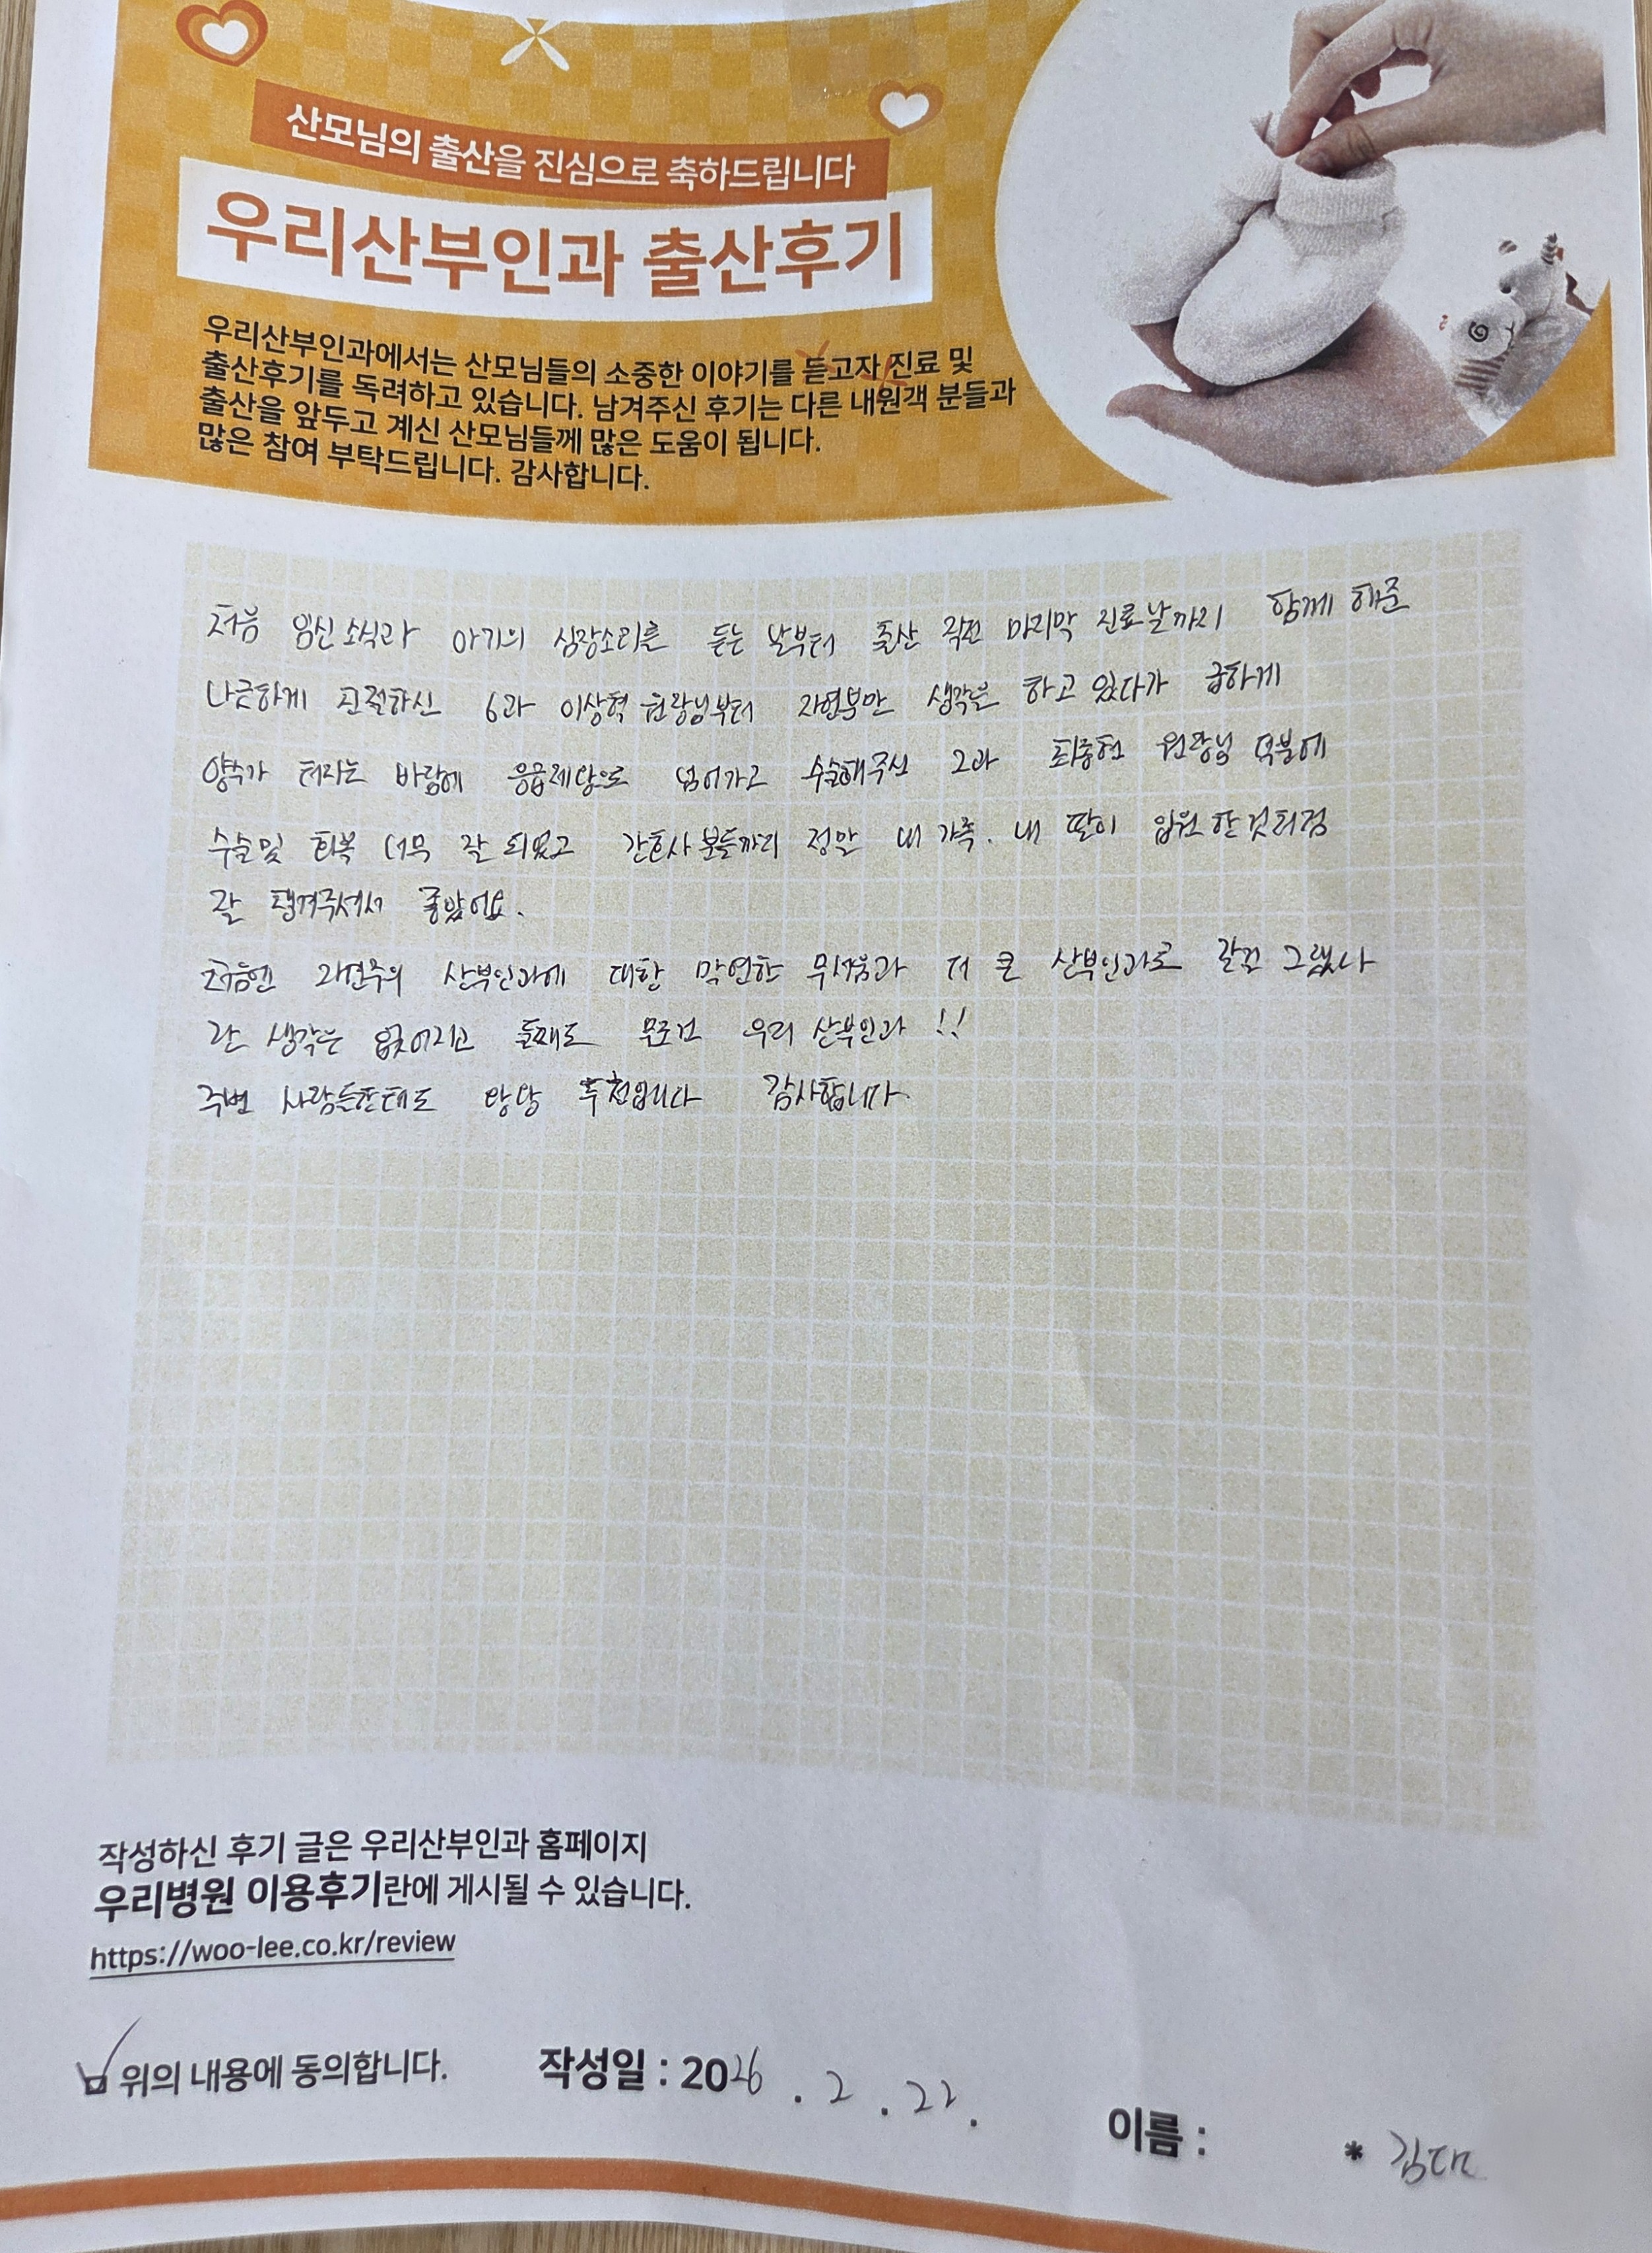 산모님의 출산을 진심으로 축하드립니다
우리산부인과 출산후기
우리산부인과에서는 산모님들의 소중한 이야기를 듣고자 진료 및
출산후기를 독려하고 있습니다. 남겨주신 후기는 다른 내원객 분들과
출산을 앞두고 계신 산모님들께 많은 도움이 됩니다.
많은 참여 부탁드립니다. 감사합니다.
처음 임신소식과 아기의 심장소리를 듣는 날부터 출산 직전 마지막 진료날까지 함께 해준
나긋하게 친절하신 6과 이상혁 원장님부터 자연분만 생각을 하고 있다가 급하게
양수가 터지는 바람에 응급제왕으로 넘어가고 수술해주신 2과 최종현 원장님 덕분에
수술및 회복 너무 잘 되었고 간호사분들까지 정말 내 가족. 내 딸이 입원한것처럼
잘 챙겨주셔서 좋았어요.
처음엔 자연주의 산부인과에 대한 막연한 무서움과 더 큰 산부인과로 갈걸 그랬나
란 생각은 없어지고 둘째도 무조건 우리 산부인과!!
주변 사람들한테도 왕왕 추천입니다 감사합니다.
작성하신 후기 글은 우리산부인과 홈페이지
우리병원 이용후기란에 게시될 수 있습니다.
https://woo-lee.co.kr/review
위의 내용에 동의합니다. 작성일 : 2026 . 2 . 22.
이름 : * 김